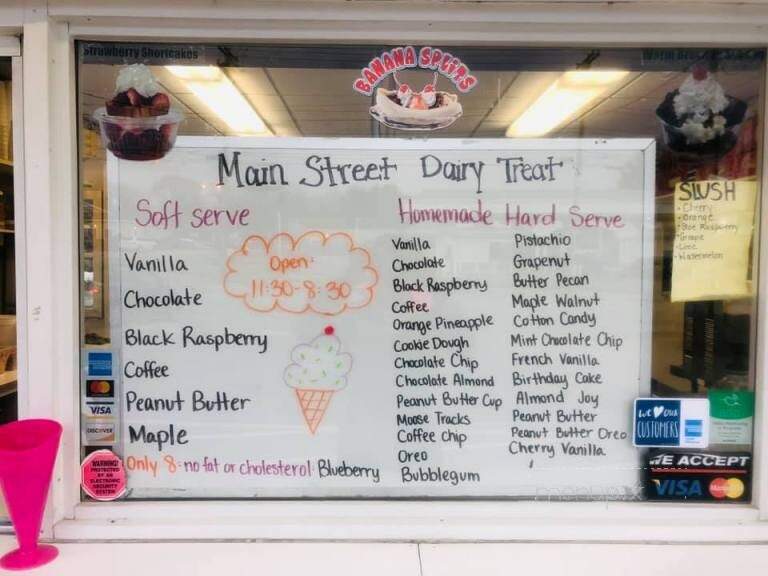 Strawberry Shortcakes
BANANA SPLITS
Main Street Dairy Treat
Soft serve
Vanilla
Chocolate
Black Raspberry
Coffee
Peanut Butter
Maple
Only 8: no fat or cholesterol: Blueberry
Open:
11:30-8:30
Homemade Hard Serve
Vanilla
Chocolate
Black Raspberry
Coffee
Orange Pineapple
Cookie Dough
Chocolate Chip
Chocolate Almond
Peanut Butter Cup
Moose Tracks
Coffee chip
Oreo
Bubblegum
Pistachio
Grapenut
Butter Pecan
Maple Walnut
Cotton Candy
Mint Chocolate Chip
French Vanilla
Birthday Cake
Almond Joy
Peanut Butter
Peanut Butter Oreo
Cherry Vanilla
SLUSH
• Cherry
• Orange
• Blue Raspberry
• Grape
• Watermelon
VISA
DISCOVER
WARNING!
PROTECTED
BY AN
ELECTRONIC
SECURITY
SYSTEM
WE OUR
CUSTOMERS
WE ACCEPT
VISA